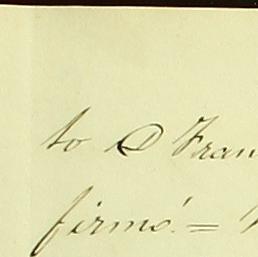 to D Fran
firmó. =